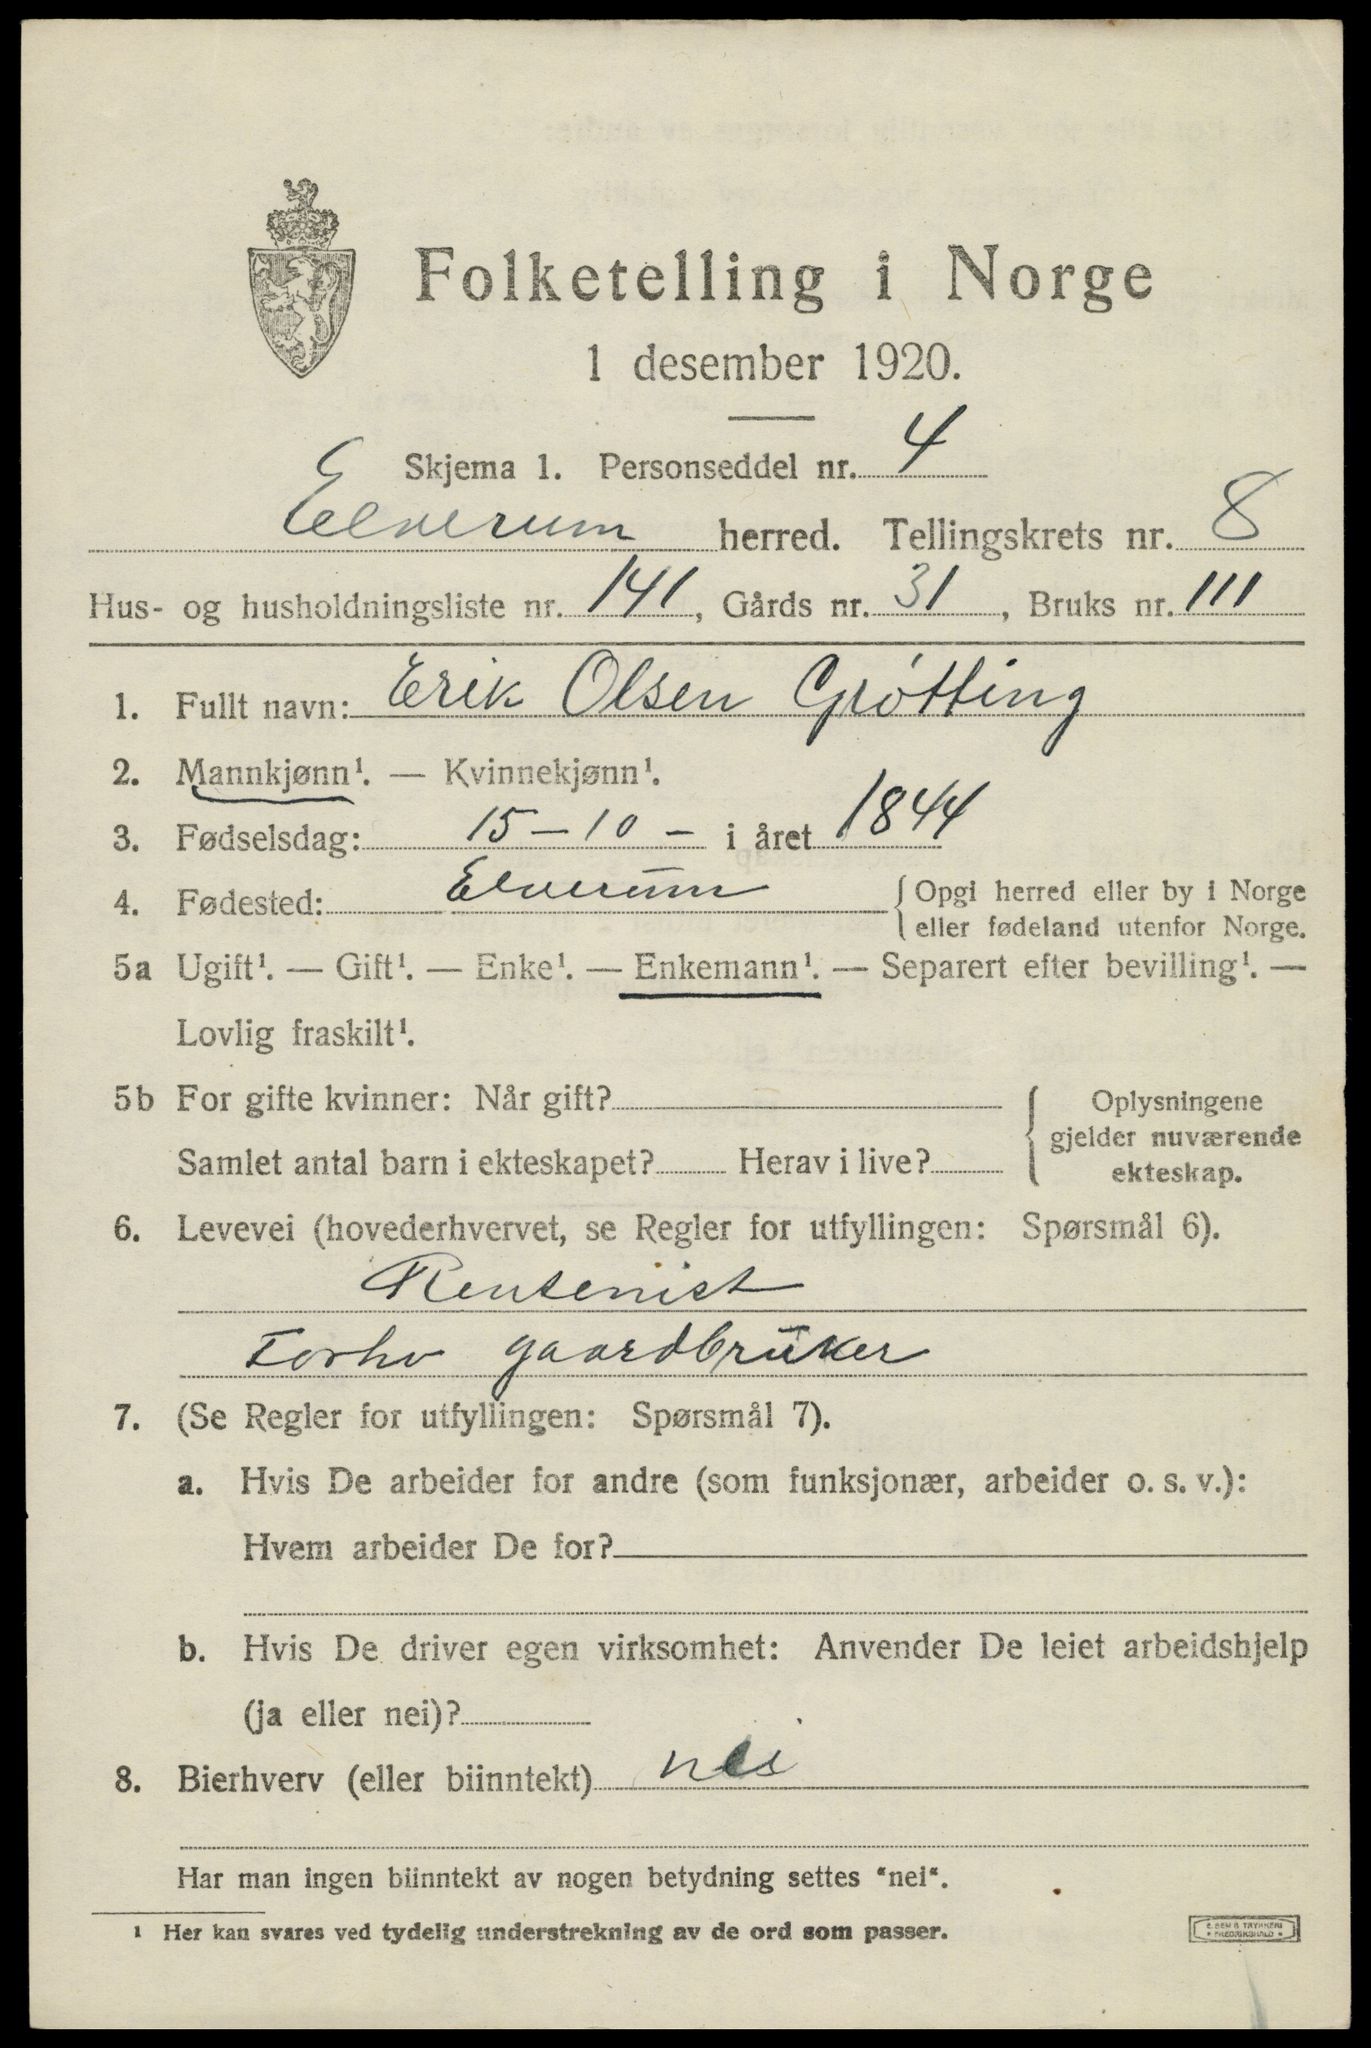 Folketelling i Norge
1 desember 1920.
Skjema 1. Personseddel nr. 4
Elverum herred. Tellingskrets nr. 8
Hus- og husholdningsliste nr. 141, Gårds nr. 31, Bruks nr. 111
1. Fullt navn: Erik Olsen Grøtting
2. Mannkjønn¹. — Kvinnekjønn¹.
3. Fødselsdag: 15 – 10 – i året 1844
4. Fødested: Elverum { Opgi herred eller by i Norge
eller fødeland utenfor Norge.
5a Ugift¹. — Gift¹. — Enke¹. — Enkemann¹. — Separert efter bevilling¹. —
Lovlig fraskilt¹.
5b For gifte kvinner: Når gift? { Oplysningene
gjelder nuværende
Samlet antal barn i ekteskapet? Herav i live? ekteskap.
6. Levevei (hovederhvervet, se Regler for utfyllingen: Spørsmål 6).
Rentenist
Forhv gaardbruker
7. (Se Regler for utfyllingen: Spørsmål 7).
a. Hvis De arbeider for andre (som funksjonær, arbeider o. s. v.):
Hvem arbeider De for?
b. Hvis De driver egen virksomhet: Anvender De leiet arbeidshjelp
(ja eller nei)?
8. Bierhverv (eller biinntekt) nei
Har man ingen biinntekt av nogen betydning settes "nei".
1 Her kan svares ved tydelig understrekning av de ord som passer.
E. SEM'S TRYKKERI
FREDRIKSHALD